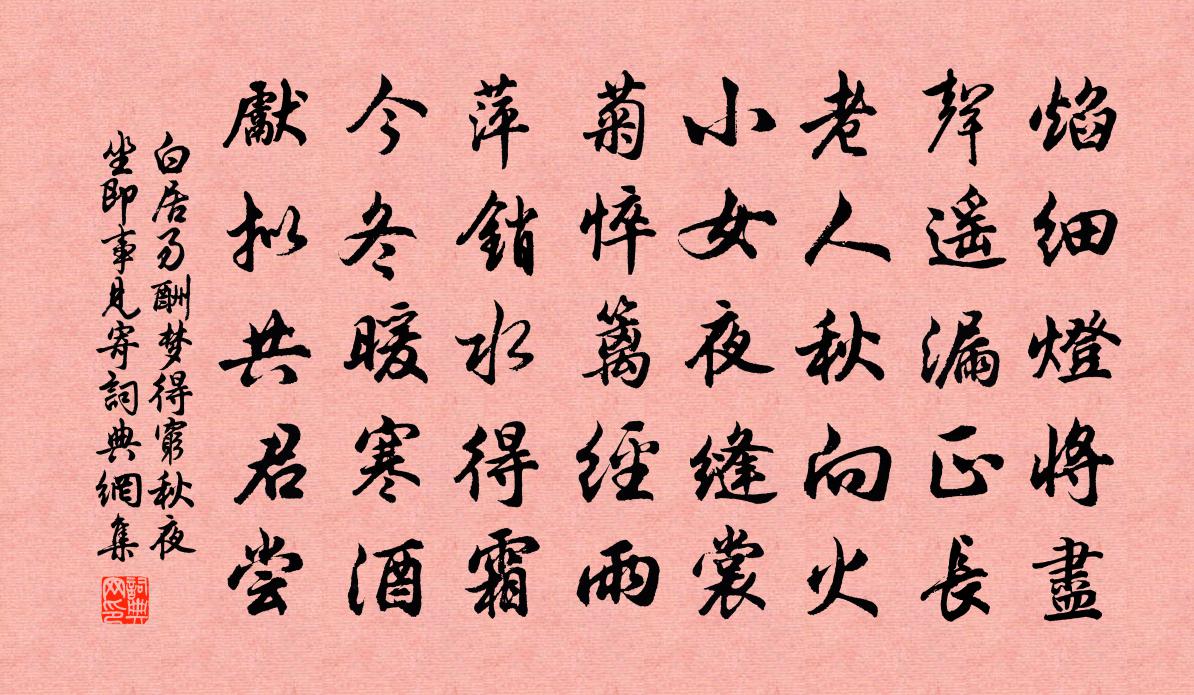 焰細燈將盡
聲遙漏正長
老人秋向火
小女夜縫裳
菊悴籬經雨
萍銷水得霜
今冬暖寒酒
獻拟共君尝
白居易酬梦得窮秋夜
坐即事見寄詞典網集
詞典
网印